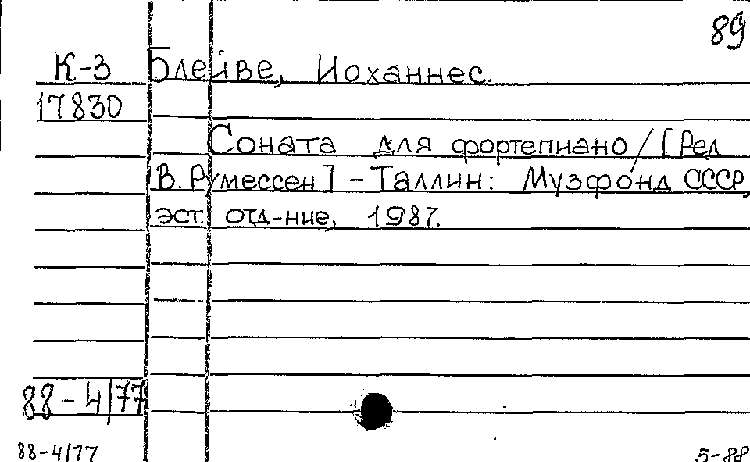 89
К-3 Блейве, Иоханнес.
17830
Соната для фортепиано / [Ред.
В. Румессен] - Таллин: Музфонд СССР,
эст. отд-ние, 1987.
88-4/77
88-4/77 5-88